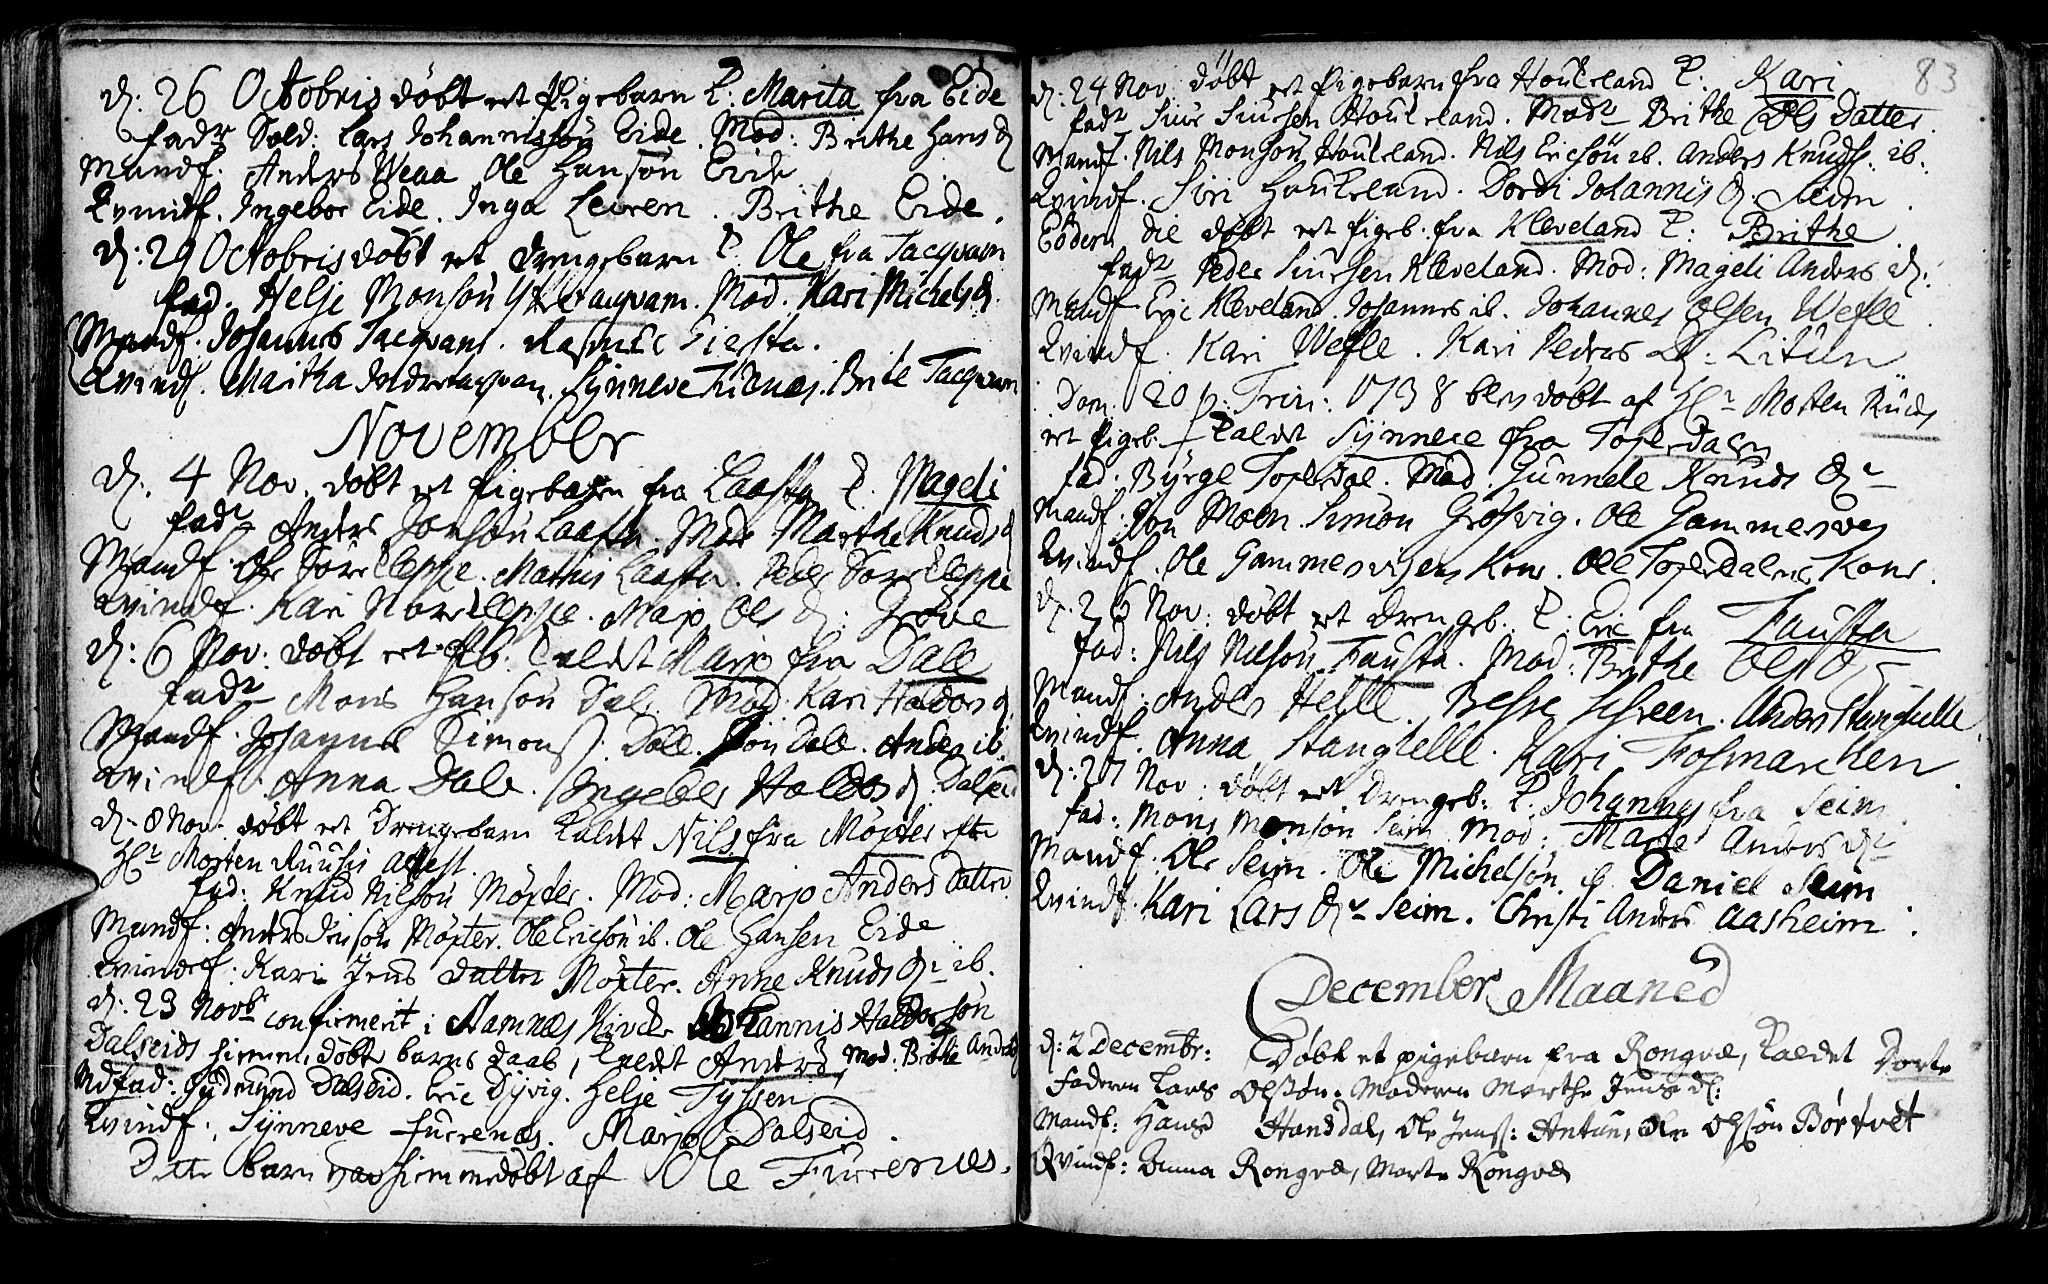 D: 26 Octobris döbt et Pigebarn k: Marita fra Eide
Fadr Sold: Lars Johannissön Eide. Mod: Brithe Hans D
Mandf. Anders Weaa Ole Hansön Eide
Qvindf. Ingebor Eide. Inga Leiren. Brithe Eide.
D: 29 Octobris döbt et Drengebarn k. Ole fra Tacqvam
Fad. Helje Monsön Ytretaqvam. Mod. Kari Michels D.
Mandf. Johannes Tacqvam. Rasmus Tiersta.
Qvindf. Maritha Indretaqvam. Synneve Brite Tacqvam
November
D. 4 Nov. döbt et Pigebarn fra Laasta k. Mageli
Fadr Anders Jonsön Laasta. Mod Marthe Knuds D
Mandf. Ole Sörekleppe. Mathis Laasta. Peder Sörekleppe
Qvindf. Kari Norekleppe. Marjo Ols D: Gröve
D: 6 Nov: döbt et Pb. kaldet Marjo fra Dale
Fadr Mons Hansön Dale Mod. Kari Haldors D.
Mandf. Johannes Simons. Dale. Jön Dale. Anders ib.
Qvindf. Anna Dale. Ingebor Haldors D. Dalseid
D. 8 Nov. döbt et Drengebarn kaldet Nils fra Möxter efter
Hr Morten Ruusis attest.
Fad: Knud Nilsön Möxter. Mod: Marjo Anders Datter.
Mandf: Anders Jensön Möxter. Ole Ericsön ib. Ole Hansen Eide
Qvindf. Kari Jens Datter Möxter. Anne Knuds Dr ib.
D: 23 Novbr confirmerit i Stamnæs Kircke Johannis Haldorsön
Dalseids hiemmedöbte barns daab, kaldet Anders, Mod. Brithe Anders D
Mdfad: Gudmund Dalseid. Eric Dyvig. Helje Tyssen
Qvindf. Synneve Furrenæs. Marjo Dalseid.
Dette barn var hiemmedöbt af Ole Furrenes.
83
D: 24 Nov. döbt et Pigebarn fra Houkeland k: Kari
Fadr Siur Siursen Houkeland. Modr Brithe Ols Datter.
Mandf. Nils Monsön Houkeland. Nils Ericsön ib. Anders Knuds. ib.
Qvindf. Siri Houkeland. Dordi Johannis D. Seim.
Eodem die döbt et Pigeb. fra Kleveland k: Brithe
Fadr Peder Siursen Kleveland. Mod: Mageli Anders D:
Mandf Eric Kleveland. Johannes ib. Johannes Olsen Wefle.
Qvindf. Kari Wefle. Kari Peders D: Litun
Dom. 20 p. Trin: 1738 blev döbt af Hr Morten Ruus
et Pigeb. kaldet Synneve fra Toskedalen
Fad. Byrge Toskedal. Mod. Gunnele Knuds Dr
Mandf: Jon Moen. Simon Grösvig. Ole Gammersves
Qvindf. Ole Gammersvigens Kone. Ole Toskedalens Kone.
D. 26 Nov: döbt et Drengeb. k. Eric fra Fausta
Fad: Nils Nilsön Fausta. Mod: Brithe Ols D
Mandf: Anders Helle. Anders Stanghelle.
Qvindf. Anna Stanghelle. Kari Fosmarchen
D: 27 Nov: döbt et Drengeb: k. Johannes fra Seim.
Fad: Mons Monsön Seim Mod: Marte Anders Dr
Mandf. Ole Seim. Ole Michelsön. Daniel Seim
Qvindf. Kari Lars Dr Seim. Christi Anders Aasheim.
December Maaned
D: 2 Decembr: Döbt et pigebarn fra Rongve, kaldet Dorte
Faderen Lars Olssön. Moderen Marthe Jens D:
Mandf: Hans Hansdal, Ole Jens: Antun, Ole Olssön Börtvet
Qvindf: Anna Rongve, Marte Rongve